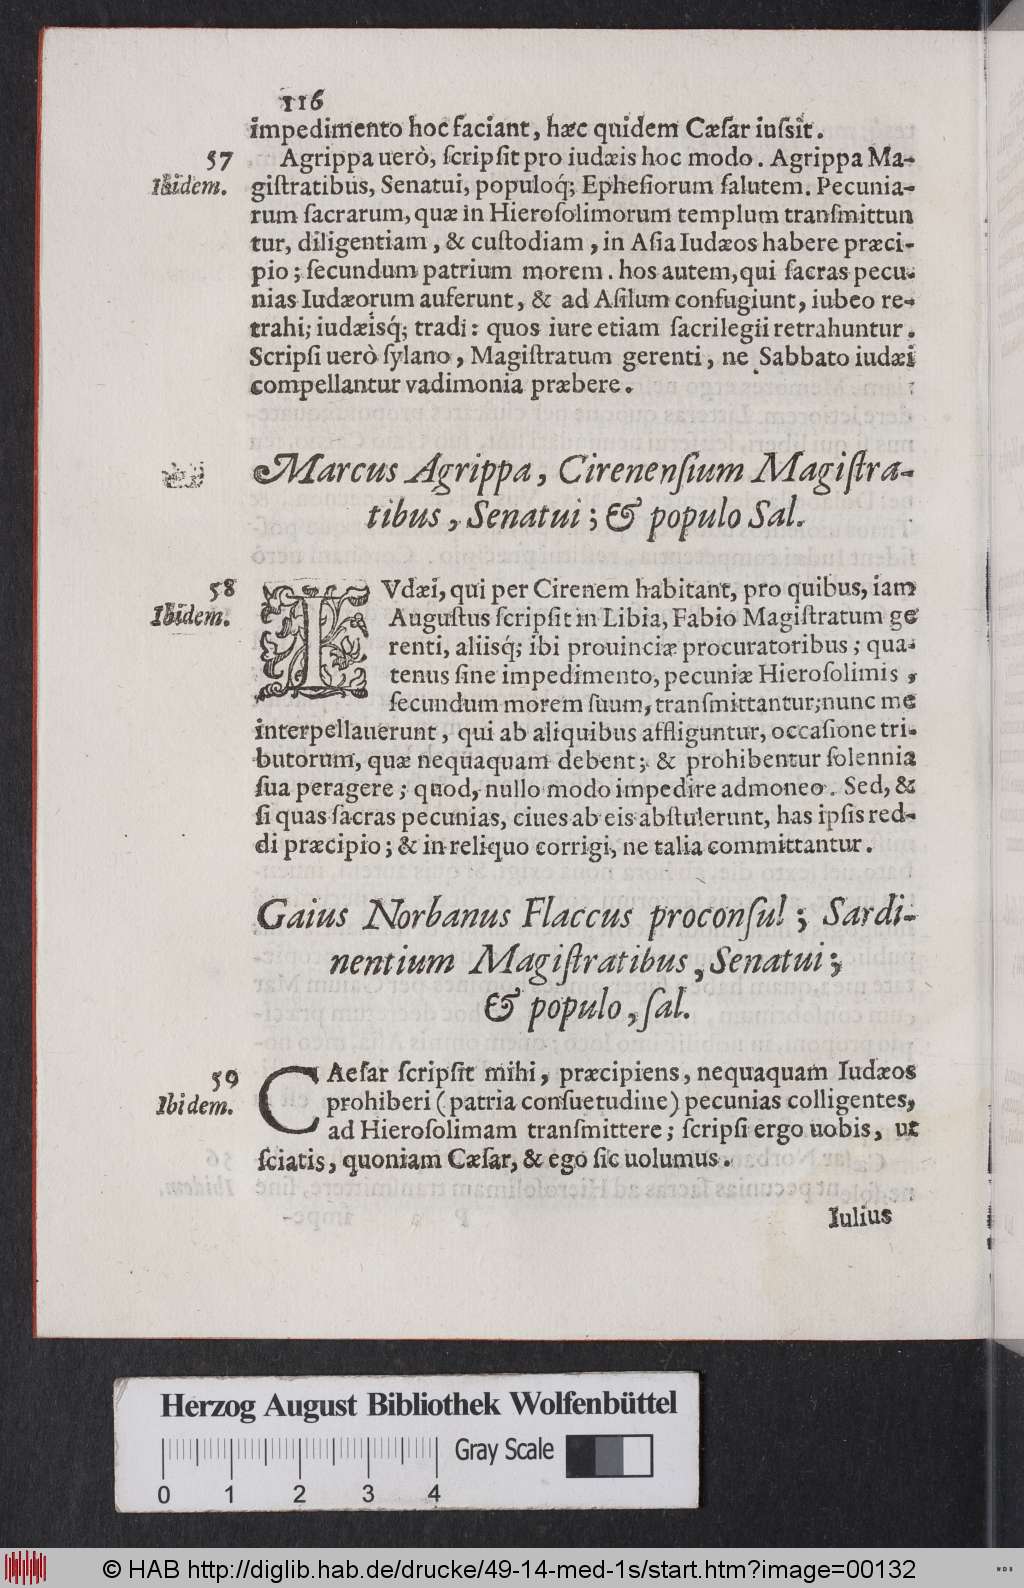 116
impedimento hoc faciant, hæc quidem Cæſar iuſsit.
57 Agrippa uerò, ſcripſit pro iudæis hoc modo. Agrippa Ma-
Ibidem. giſtratibus, Senatui, populoq́; Epheſiorum ſalutem. Pecunia-
rum ſacrarum, quæ in Hieroſolimorum templum tranſmittun
tur, diligentiam, & cuſtodiam, in Aſia Iudæos habere præci-
pio; ſecundum patrium morem. hos autem, qui ſacras pecu-
nias Iudæorum auferunt, & ad Aſilum confugiunt, iubeo re-
trahi; iudæiſq́; tradi: quos iure etiam ſacrilegii retrahuntur.
Scripſi uerò ſylano, Magiſtratum gerenti, ne Sabbato iudæi
compellantur vadimonia præbere.
Marcus Agrippa, Cirenenſium Magiſtra-
tibus, Senatui; & populo Sal.
58 IVdæi, qui per Cirenem habitant, pro quibus, iam
Ibidem. Auguſtus ſcripſit in Libia, Fabio Magiſtratum ge
renti, aliisq́; ibi prouinciæ procuratoribus; qua-
tenus ſine impedimento, pecuniæ Hieroſolimis,
ſecundum morem ſuum, tranſmittantur; nunc me
interpellauerunt, qui ab aliquibus affliguntur, occaſione tri-
butorum, quæ nequaquam debent; & prohibentur ſolennia
ſua peragere; quod, nullo modo impedire admoneo. Sed, &
ſi quas ſacras pecunias, ciues ab eis abſtulerunt, has ipſis red-
di præcipio; & in reliquo corrigi, ne talia committantur.
Gaius Norbanus Flaccus proconſul; Sardi-
nentium Magiſtratibus, Senatui;
& populo, ſal.
59 CAeſar ſcripſit mihi, præcipiens, nequaquam Iudæos
Ibidem. prohiberi (patria conſuetudine) pecunias colligentes,
ad Hieroſolimam tranſmittere; ſcripſi ergo uobis, ut
ſciatis, quoniam Cæſar, & ego ſic uolumus.
Iulius
Herzog August Bibliothek Wolfenbüttel
Gray Scale
0 1 2 3 4
© HAB http://diglib.hab.de/drucke/49-14-med-1s/start.htm?image=00132